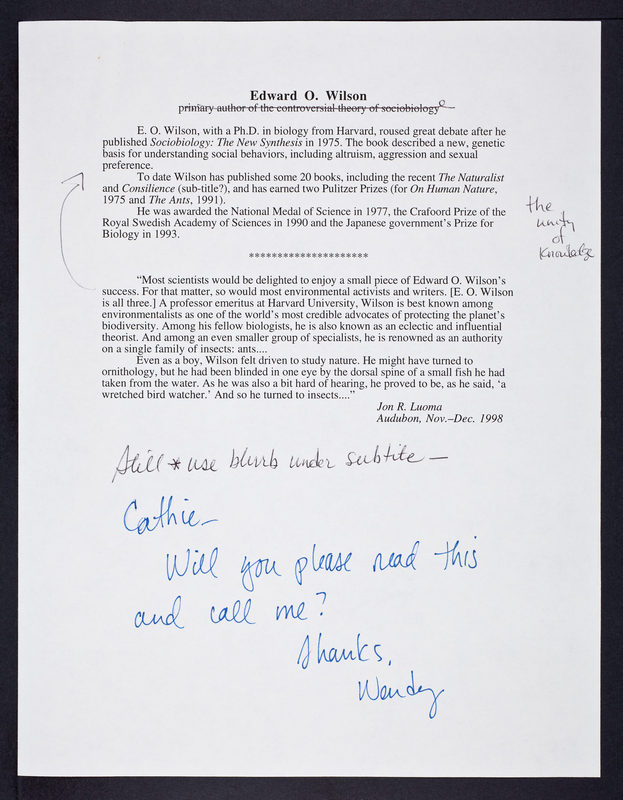 Edward O. Wilson
primary author of the controversial theory of sociobiology
E. O. Wilson, with a Ph.D. in biology from Harvard, roused great debate after he
published Sociobiology: The New Synthesis in 1975. The book described a new, genetic
basis for understanding social behaviors, including altruism, aggression and sexual
preference.
To date Wilson has published some 20 books, including the recent The Naturalist
and Consilience (sub-title?), and has earned two Pulitzer Prizes (for On Human Nature,
1975 and The Ants, 1991).
He was awarded the National Medal of Science in 1977, the Crafoord Prize of the
Royal Swedish Academy of Sciences in 1990 and the Japanese government's Prize for
Biology in 1993.
the
unity
of
Knowledge
*********************
“Most scientists would be delighted to enjoy a small piece of Edward O. Wilson's
success. For that matter, so would most environmental activists and writers. [E. O. Wilson
is all three.] A professor emeritus at Harvard University, Wilson is best known among
environmentalists as one of the world's most credible advocates of protecting the planet's
biodiversity. Among his fellow biologists, he is also known as an eclectic and influential
theorist. And among an even smaller group of specialists, he is renowned as an authority
on a single family of insects: ants....
Even as a boy, Wilson felt driven to study nature. He might have turned to
ornithology, but he had been blinded in one eye by the dorsal spine of a small fish he had
taken from the water. As he was also a bit hard of hearing, he proved to be, as he said, ‘a
wretched bird watcher.’ And so he turned to insects....”
Jon R. Luoma
Audubon, Nov.–Dec. 1998
Still * use blurb under subtitle —
Cathie —
Will you please read this
and call me?
Thanks,
Wendy